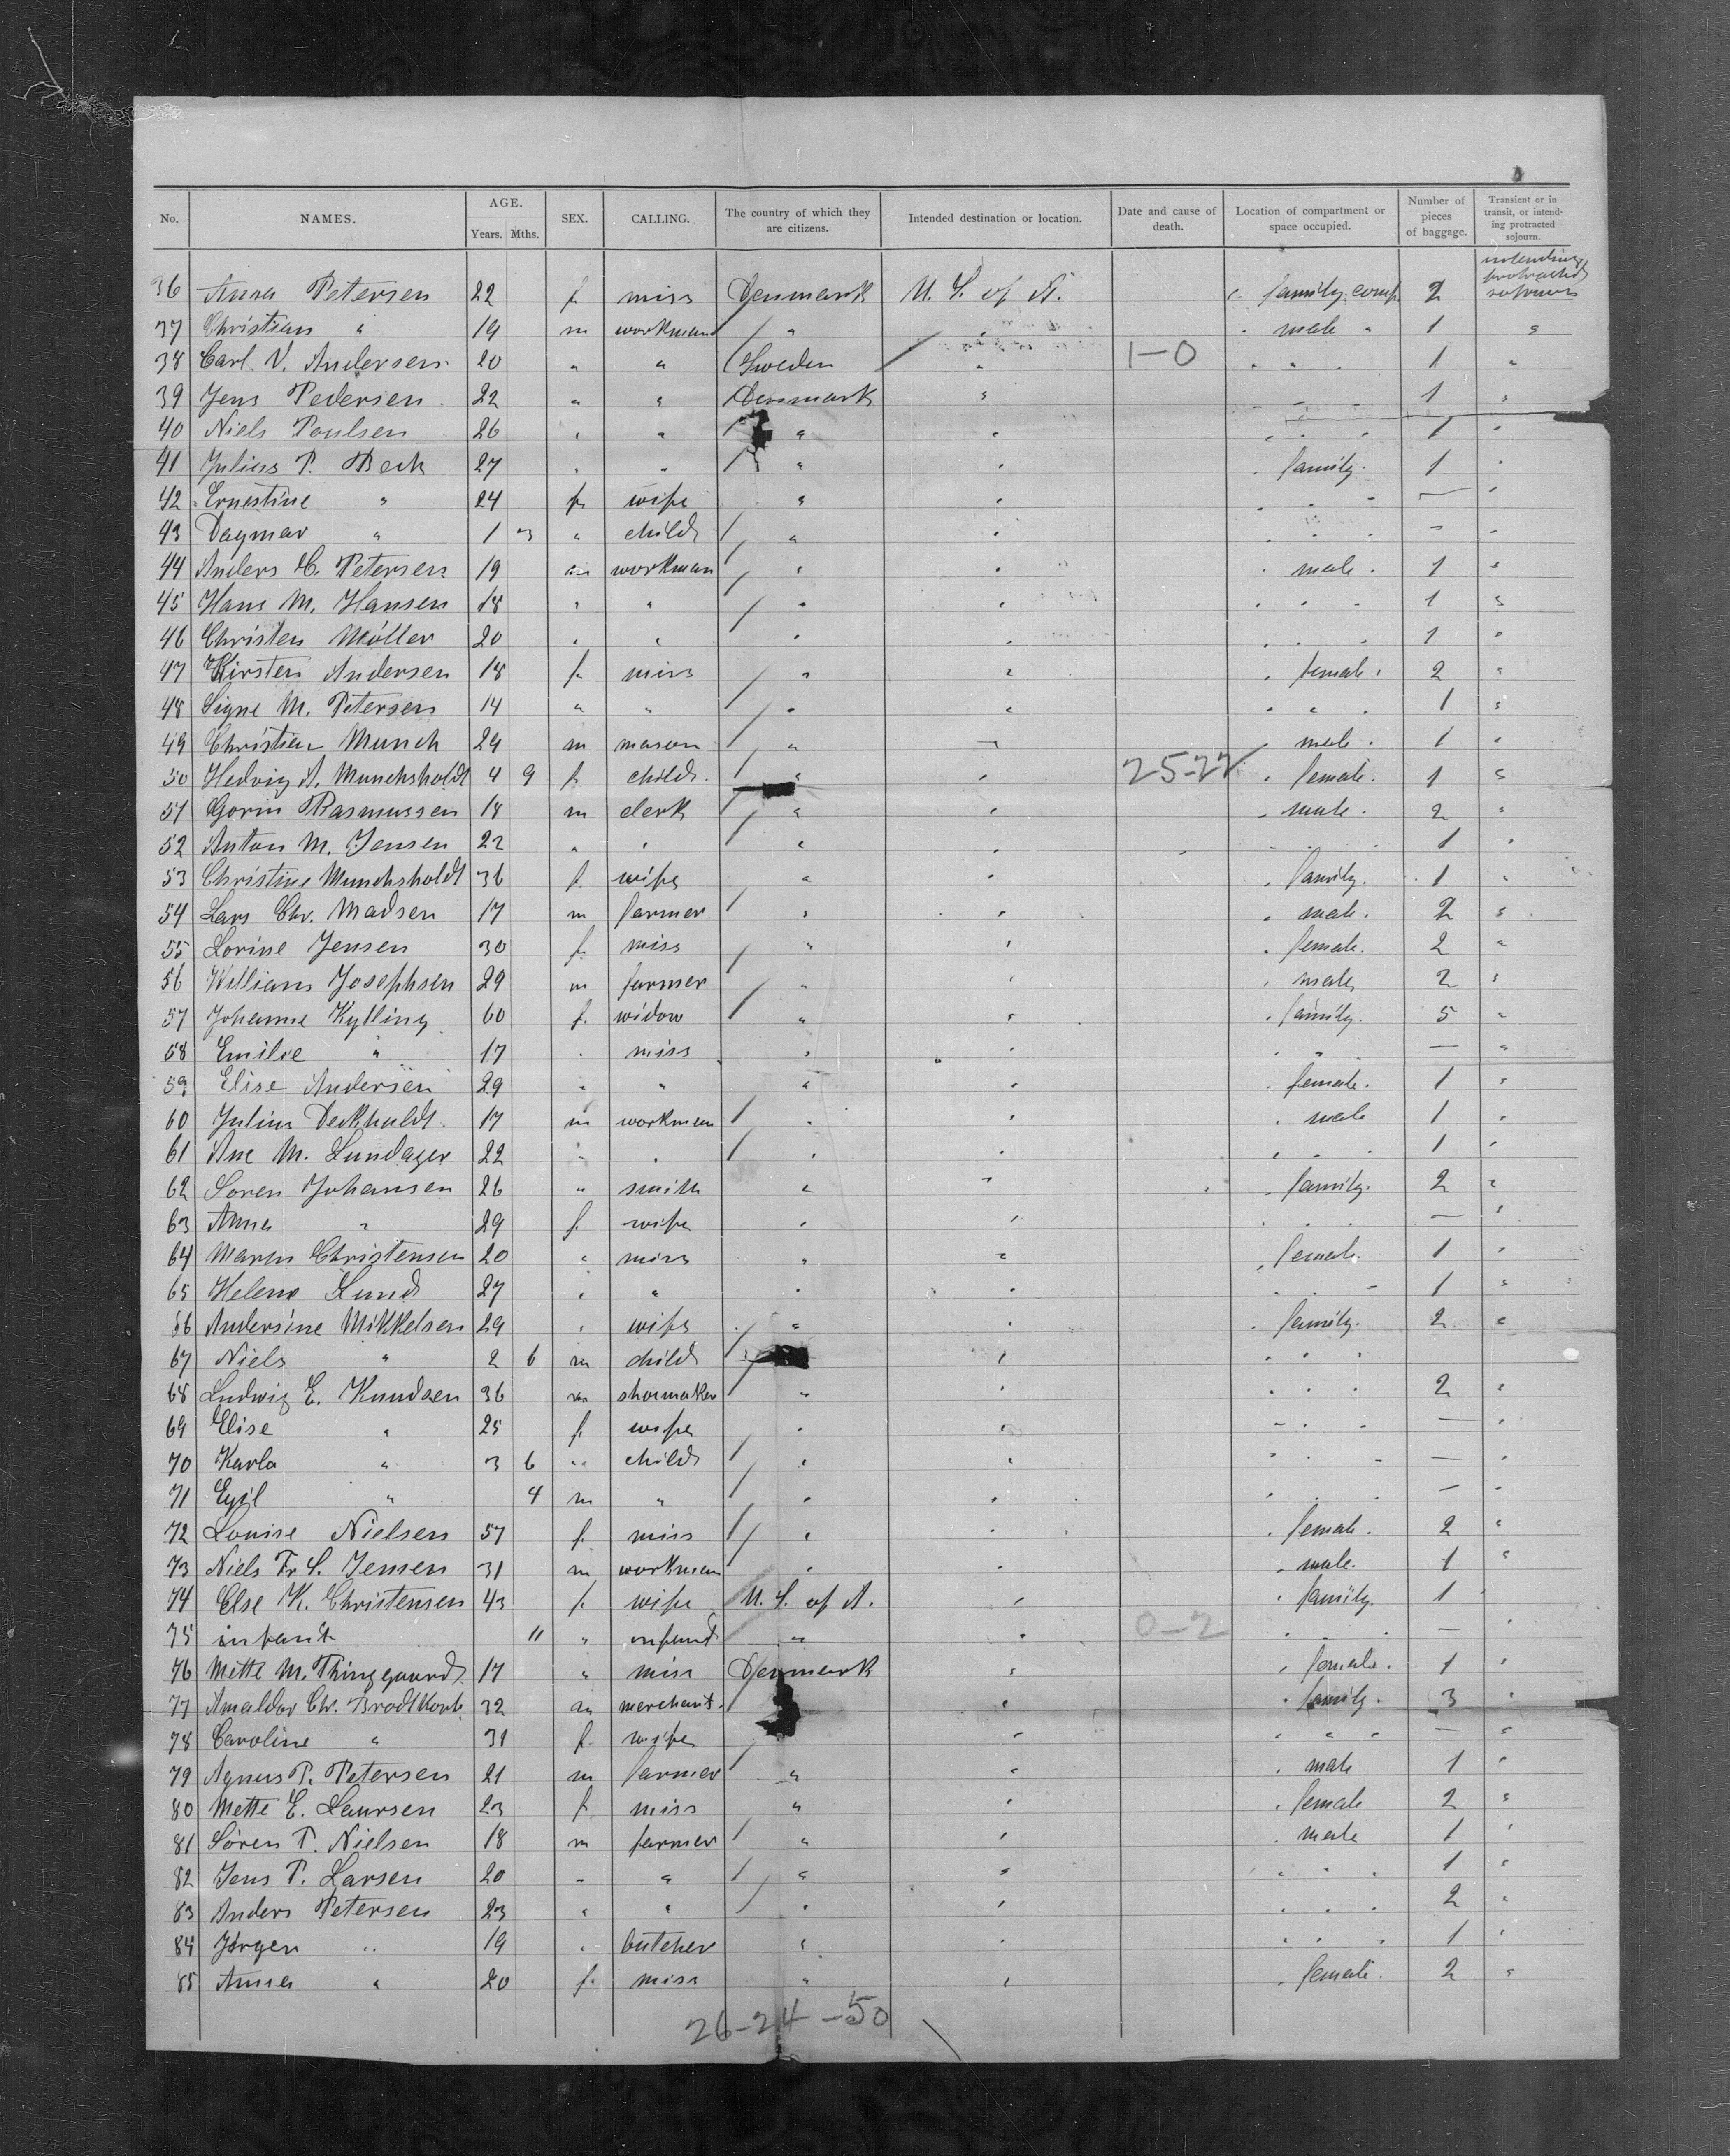 No. NAMES. AGE. Years. Mths. SEX. CALLING. The country of which they are citizens. Intended destination or location. Date and cause of death. Location of compartment or space occupied. Number of pieces of baggage. Transient or in transit, or intending protracted sojourn.
36 Anna Petersen 22 f. miss Denmark U. S. of A. family comp. 2 intending protracted sojourn
37 Christian " 19 m workman " " male " 1 "
38 Carl V. Andersen 20 " " Sweden " 1-0 " " 1 "
39 Jens Pedersen 22 " " Denmark " " " 1 "
40 Niels Poulsen 26 " " " " " " 1 "
41 Julius P. Beck 27 " " " " family. 1 "
42 Ernestine " 24 f. wife " " " " — "
43 Dagmar " 1 3 " child " " " " — "
44 Anders C. Petersen 19 m workman " " male. 1 "
45 Hans M. Hansen 18 " " " " " " 1 "
46 Christen Möller 20 " " " " " " 1 "
47 Kirsten Andersen 18 f. miss " " female. 2 "
48 Signe M. Petersen 14 " " " " " " 1 "
49 Christian Munch 29 m mason " " male. 1 "
50 Hedvig A. Munchsholdt 4 9 f. child. " " 25-22 female. 1 "
51 Gorm Rasmussen 18 m clerk " " male. 2 "
52 Anton M. Jensen 22 " " " " " " 1 "
53 Christine Munchsholdt 36 f. wife " " family. 1 "
54 Lars Chr. Madsen 17 m farmer " " male. 2 "
55 Lorine Jensen 30 f. miss " " female. 2 "
56 William Josephsen 29 m farmer " " male 2 "
57 Johanne Kylling 60 f. widow " " family. 5 "
58 Emilie " 17 " miss " " " " — "
59 Elise Andersen 29 " " " " female. 1 "
60 Julius Deckholdt. 17 m workman " " male 1 "
61 Ane M. Lundager 22 " " " " " " 1 "
62 Soren Johansen 26 " smith " " family. 2 "
63 Anna " 29 f. wife " " " " — "
64 Maren Christensen 20 " miss " " female. 1 "
65 Helene Lund 27 " " " " " " 1 "
66 Andersine Mikkelsen 29 " wife " " family. 2 "
67 Niels " 2 6 m child " " "
68 Ludwig E. Knudsen 36 m shoemaker " " " " 2 "
69 Elise " 25 f. wife " " " " — "
70 Karla " 3 6 " child " " " " — "
71 Egil " 4 m " " " " " — "
72 Louise Nielsen 57 f. miss " " female. 2 "
73 Niels Fr. S. Jensen 31 m workman " " male. 1 "
74 Else K. Christensen 43 f. wife U. S. of A. " family. 1 "
75 infant 11 " infant " " 0-2 " " — "
76 Mette M. Thinggaard 17 " miss Denmark " female. 1 "
77 Amaldor Chr. Brodtkorb 32 m merchant. " family. 3 "
78 Caroline " 31 f. wife " " " — "
79 Agnus P. Petersen 21 m farmer " " male 1 "
80 Mette E. Laursen 23 f. miss " " female 2 "
81 Sören P. Nielsen 18 m farmer " " male 1 "
82 Jens P. Larsen 20 " " " " " " 1 "
83 Anders Petersen 23 " " " " " " 2 "
84 Jörgen " 19 " butcher " " " " 1 "
85 Anna " 20 f. miss " " female. 2 "
26-24-50